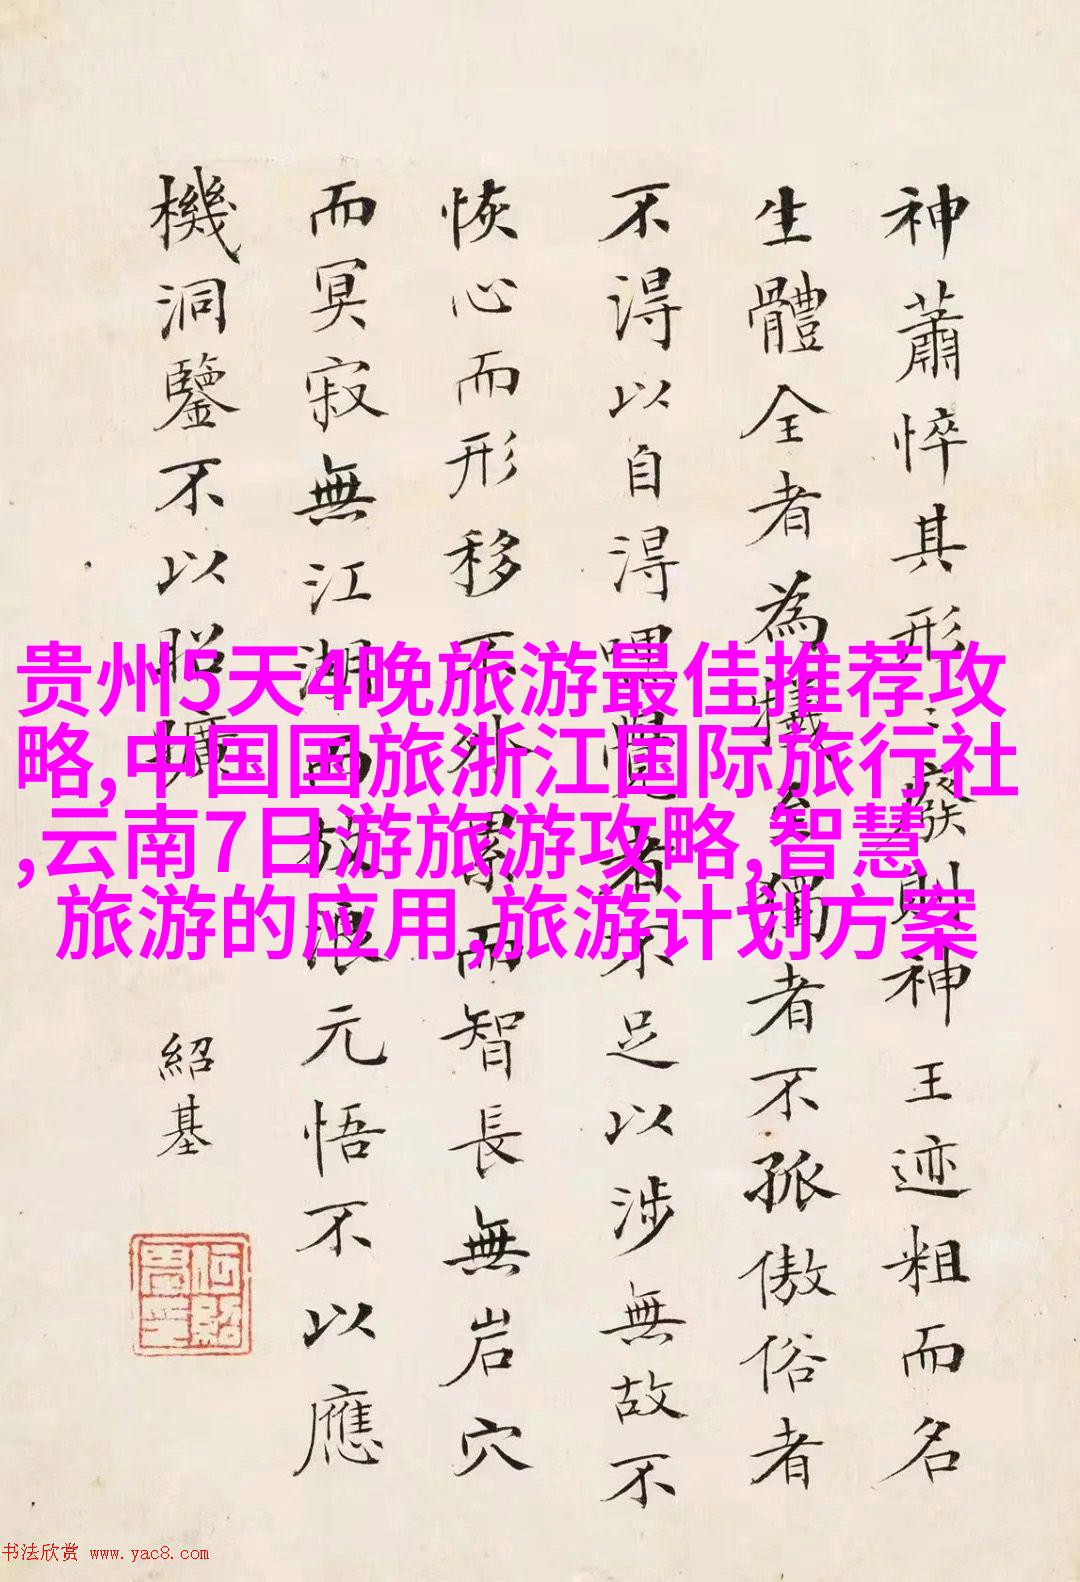 贵州5天4晚旅游最佳推荐攻
略,中国国旅浙江国际旅行社
,云南7日游旅游攻略,智慧
旅游的应用,旅游计划方案
神蕭悴其形癈則神王迹粗而名
生體全者為犧獨者不孤傲俗者
不淂以自淂覺者不足以涉無故不
恢心而形移不外累而智長無岩穴
而冥寂無江湖而放浪元悟不以應
機洞鑒不以昭
紹基
何紹基
书法欣赏 www.yac8.com